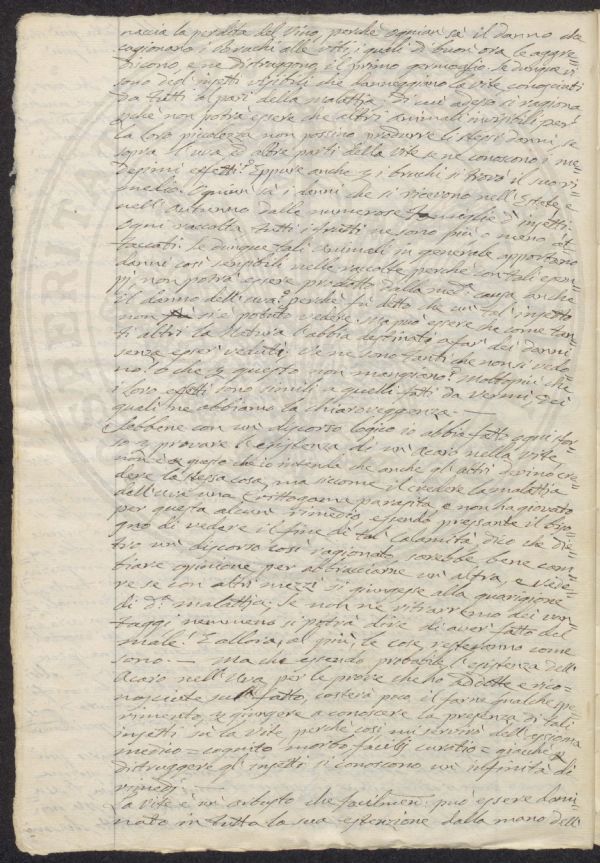 naccia la perdita del Vino, perchè ognun sà il danno che
cagionano i bruchi alle viti, i quali di buon'ora le aggre=
discono e ne distruggono il primo germoglio. Se dunque vi
sono degl'insetti visibili che danneggiano la vite conosciuti
da tutti al pari della malattia, di cui adesso si ragiona
perchè non potrà essere che altri animali invisibili per
la loro picolezza non possino produrre li stessi danni, se
sopra l'uva ed altre parti della vite se ne conoscono i me=
desimi effetti? Eppure anche p. i bruchi si trovò il suo ri=
medio. Ognun sà i danni che si ricevono nell'Estate e
nell'Autunno dalle numerose famiglie d'insetti:
Ogni raccolta, tutti i frutti ne sono più o meno at=
taccati. Se dunque tali animali in generale apportano
danni così sensibili nelle raccolte perchè con tali esem=
pi, non potrà essere prodotto dalla med.a causa anche
il danno dell'uva? perchè fù detto che un tal insetto
non si è potuto vedere. Ma può essere che come tan=
ti altri la Natura l'abbia destinato a far dei danni
senza esser veduti. Ve ne sono tanti che non si vedo=
no! o che p. questo non mangiano? Moltopiù che
i loro effetti sono simili a quelli fatti da vermi, dei
quali ne abbiamo la chiaroveggenza. —
Sebbene con un discorso logico io abbia fatto ogni sfor=
zo p. provare l'esistenza di un Acaro nella Vite
non è p. questo che io intenda che anche gli altri devino cre=
dere la stessa cosa, ma siccome il credere la malattia
dell'uva una Crittogama parasita, e non ha giovato
per questa alcun rimedio, essendo pressante il biso=
gno di vedere il fine di tal Calamità, dico che die=
tro un discorso così ragionato, sarebbe bene cam=
biare opinione per abbracciarne un'altra, e vede=
re se con altri mezzi si giungesse alla guarigione
di d.a malattia. Se non ne ritrarremo dei van=
taggi nemmeno si potrà dire di aver fatto del
male! E allora, al più, le cose resteranno come
sono. — Ma che essendo probabile l'esistenza dell'
Acaro nell'Uva per le prove che ho addotte e rico=
nosciute sul fatto, costerà poco il farne qualche spe=
rimento, se giungere a conoscere la presenza di tali
insetti sù la Vite, perchè così mi servirà dell'assioma
medico = cognito morbo facilis curatio = giacchè p.
distruggere gl'insetti si conoscono un'infinità di
rimedj. —
La Vite è un arbusto che facilmen. può essere domi=
nato in tutta la sua estenzione dalla mano dell'